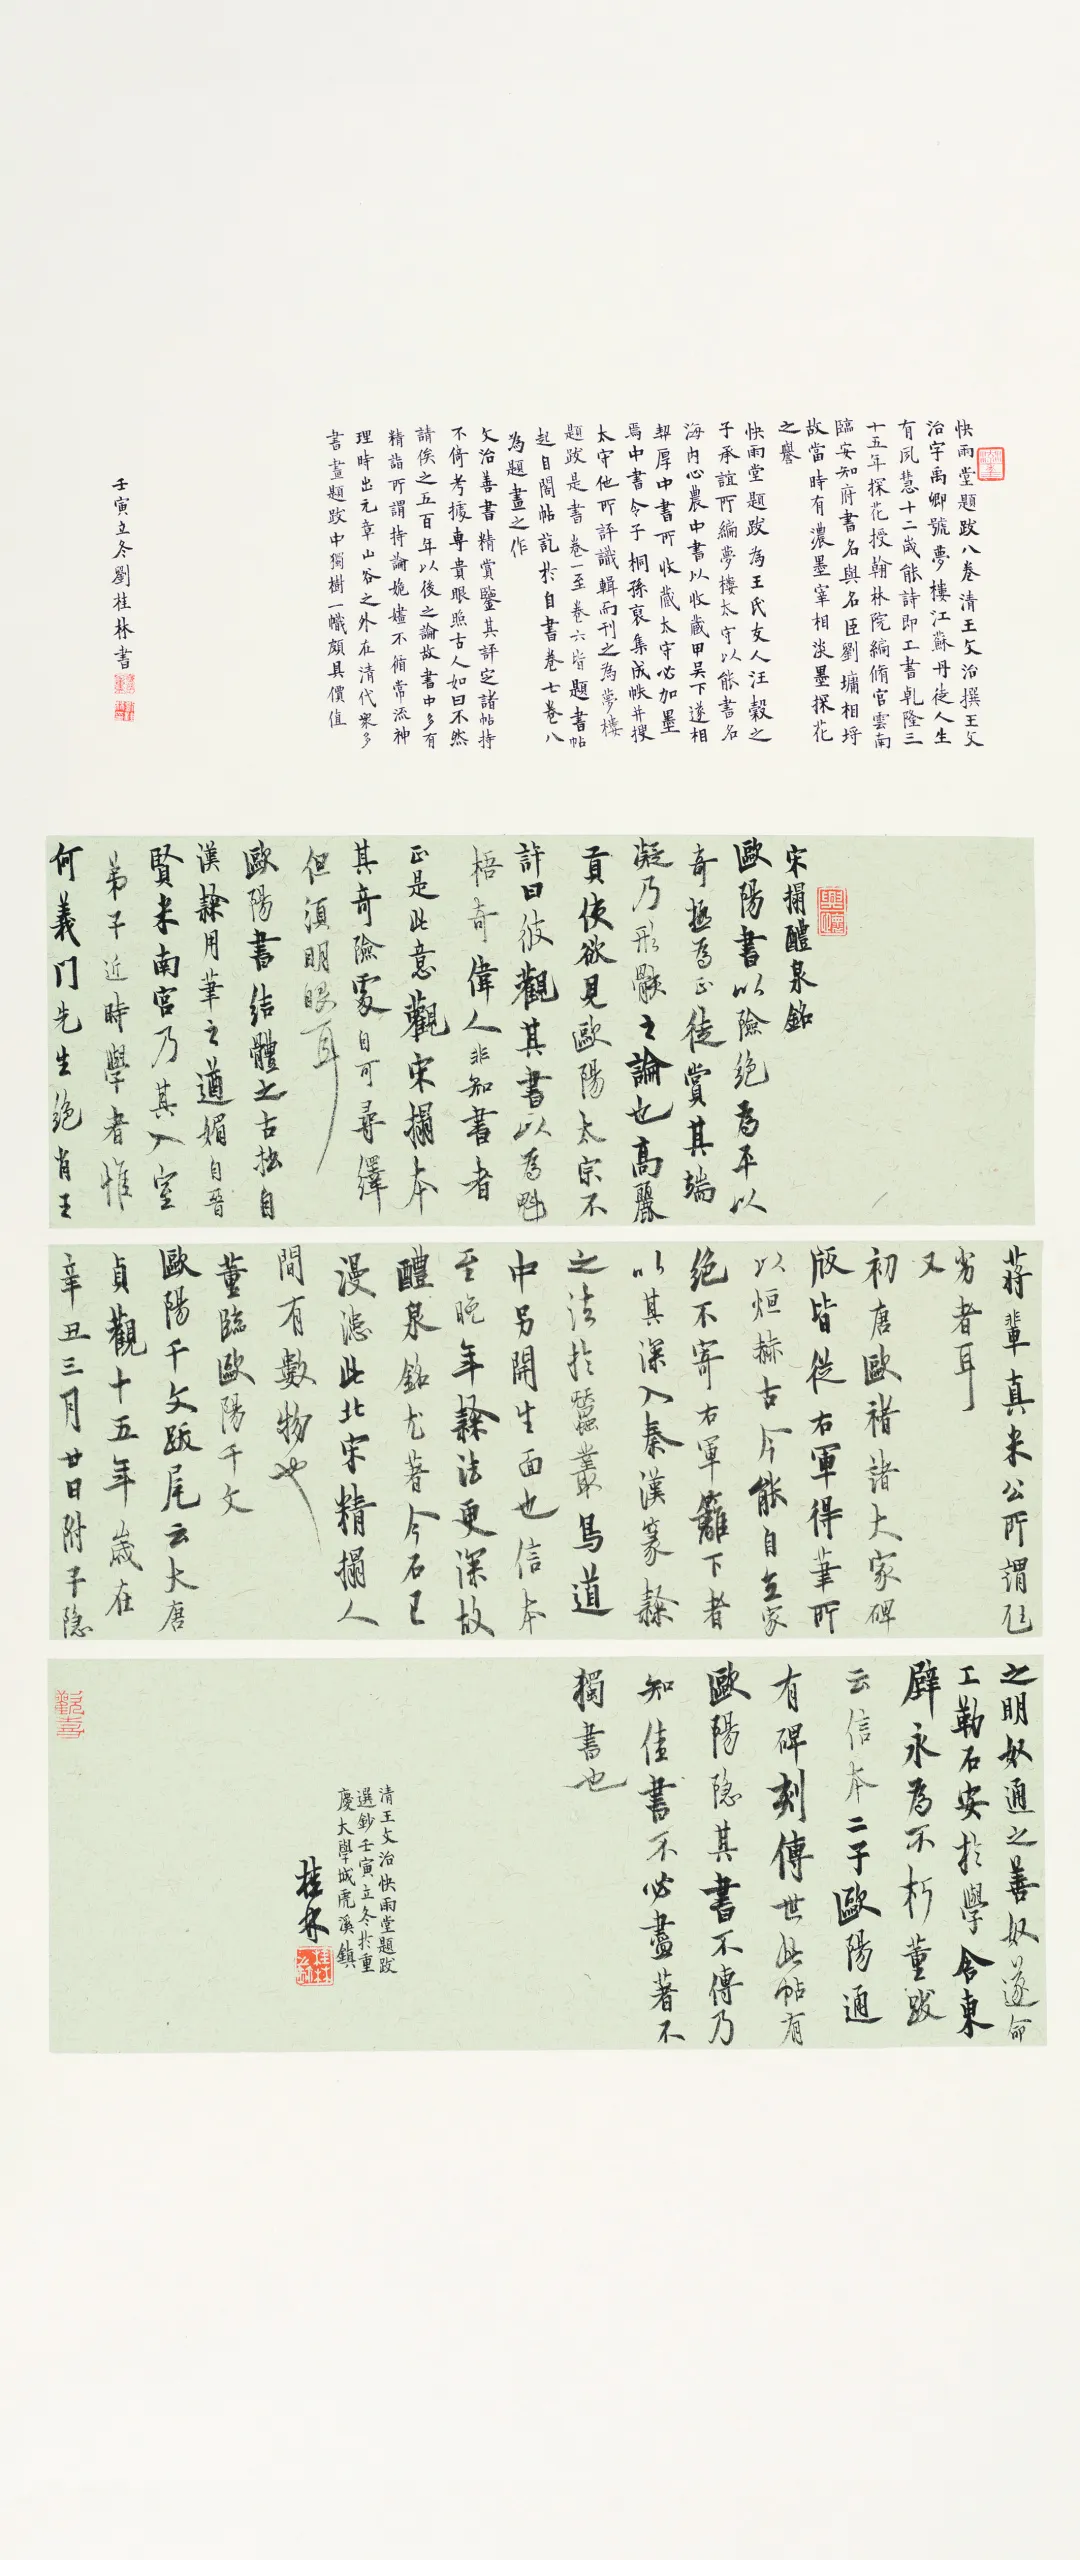 快雨堂題跋八卷清王文治撰王文
治字禹卿號夢樓江蘇丹徒人生
有夙慧十二歲能詩即工書乾隆三
十五年探花授翰林院編脩官雲南
臨安知府書名與名臣劉墉相埒
故當時有濃墨宰相淡墨探花
之譽
快雨堂題跋為王氏友人汪榖之
子承誼所編夢樓太守以能書名
海內心農中書以收藏甲吳下遂相
契厚中書所收藏太守必加墨
焉中書令子桐孫裒集成帙并搜
太守他所評識輯而刊之為夢樓
題跋是書卷一至卷六皆題書帖
起自閣帖訖於自書卷七卷八
為題畫之作
文治善書精賞鑒其評定諸帖持
不倚考據專貴眼照古人如曰不然
請俟之五百年以後之論故書中多有
精詣所謂持論婉嫿不循常流神
理時出元章山谷之外在清代衆多
書畫題跋中獨樹一幟頗具價值
壬寅立冬劉桂林書
宋搨醴泉銘
歐陽書以險絕為平以
奇極為正徒賞其端
凝乃形骸之論也高麗
貢使欲見歐陽太宗不
許曰彼觀其書以為魁
梧奇偉人非知書者
正是此意觀宋搨本
其奇險處自可尋繹
但須明眼耳
歐陽書結體之古拙自
漢隸用筆之遒媚自晉
賢米南宮乃其入室
弟子近時學者惟
何義門先生絕肖王
蔣輩真米公所謂
劣者耳
又
初唐歐褚諸大家碑
版皆從右軍得筆所
以烜赫古今能自立家
絕不寄右軍籬下者
以其深入秦漢篆隸
之法於蠶叢鳥道
中另開生面也信本
至晚年隸法更深故
醴泉銘尤著今石已
漫漶此北宋精搨人
間有數物也
董臨歐陽千文
歐陽千文跋尾云大唐
貞觀十五年歲在
辛丑三月廿日附子隱
之明奴通之善奴遂命
工勒石安於學舍東
壁永為不朽董跋
云信本二子歐陽通
有碑刻傳世此帖有
歐陽隱其書不傳乃
知佳書不必盡著不
獨書也
清王文治快雨堂題跋
選鈔壬寅立冬於重
慶大學城虎溪鎮
桂林